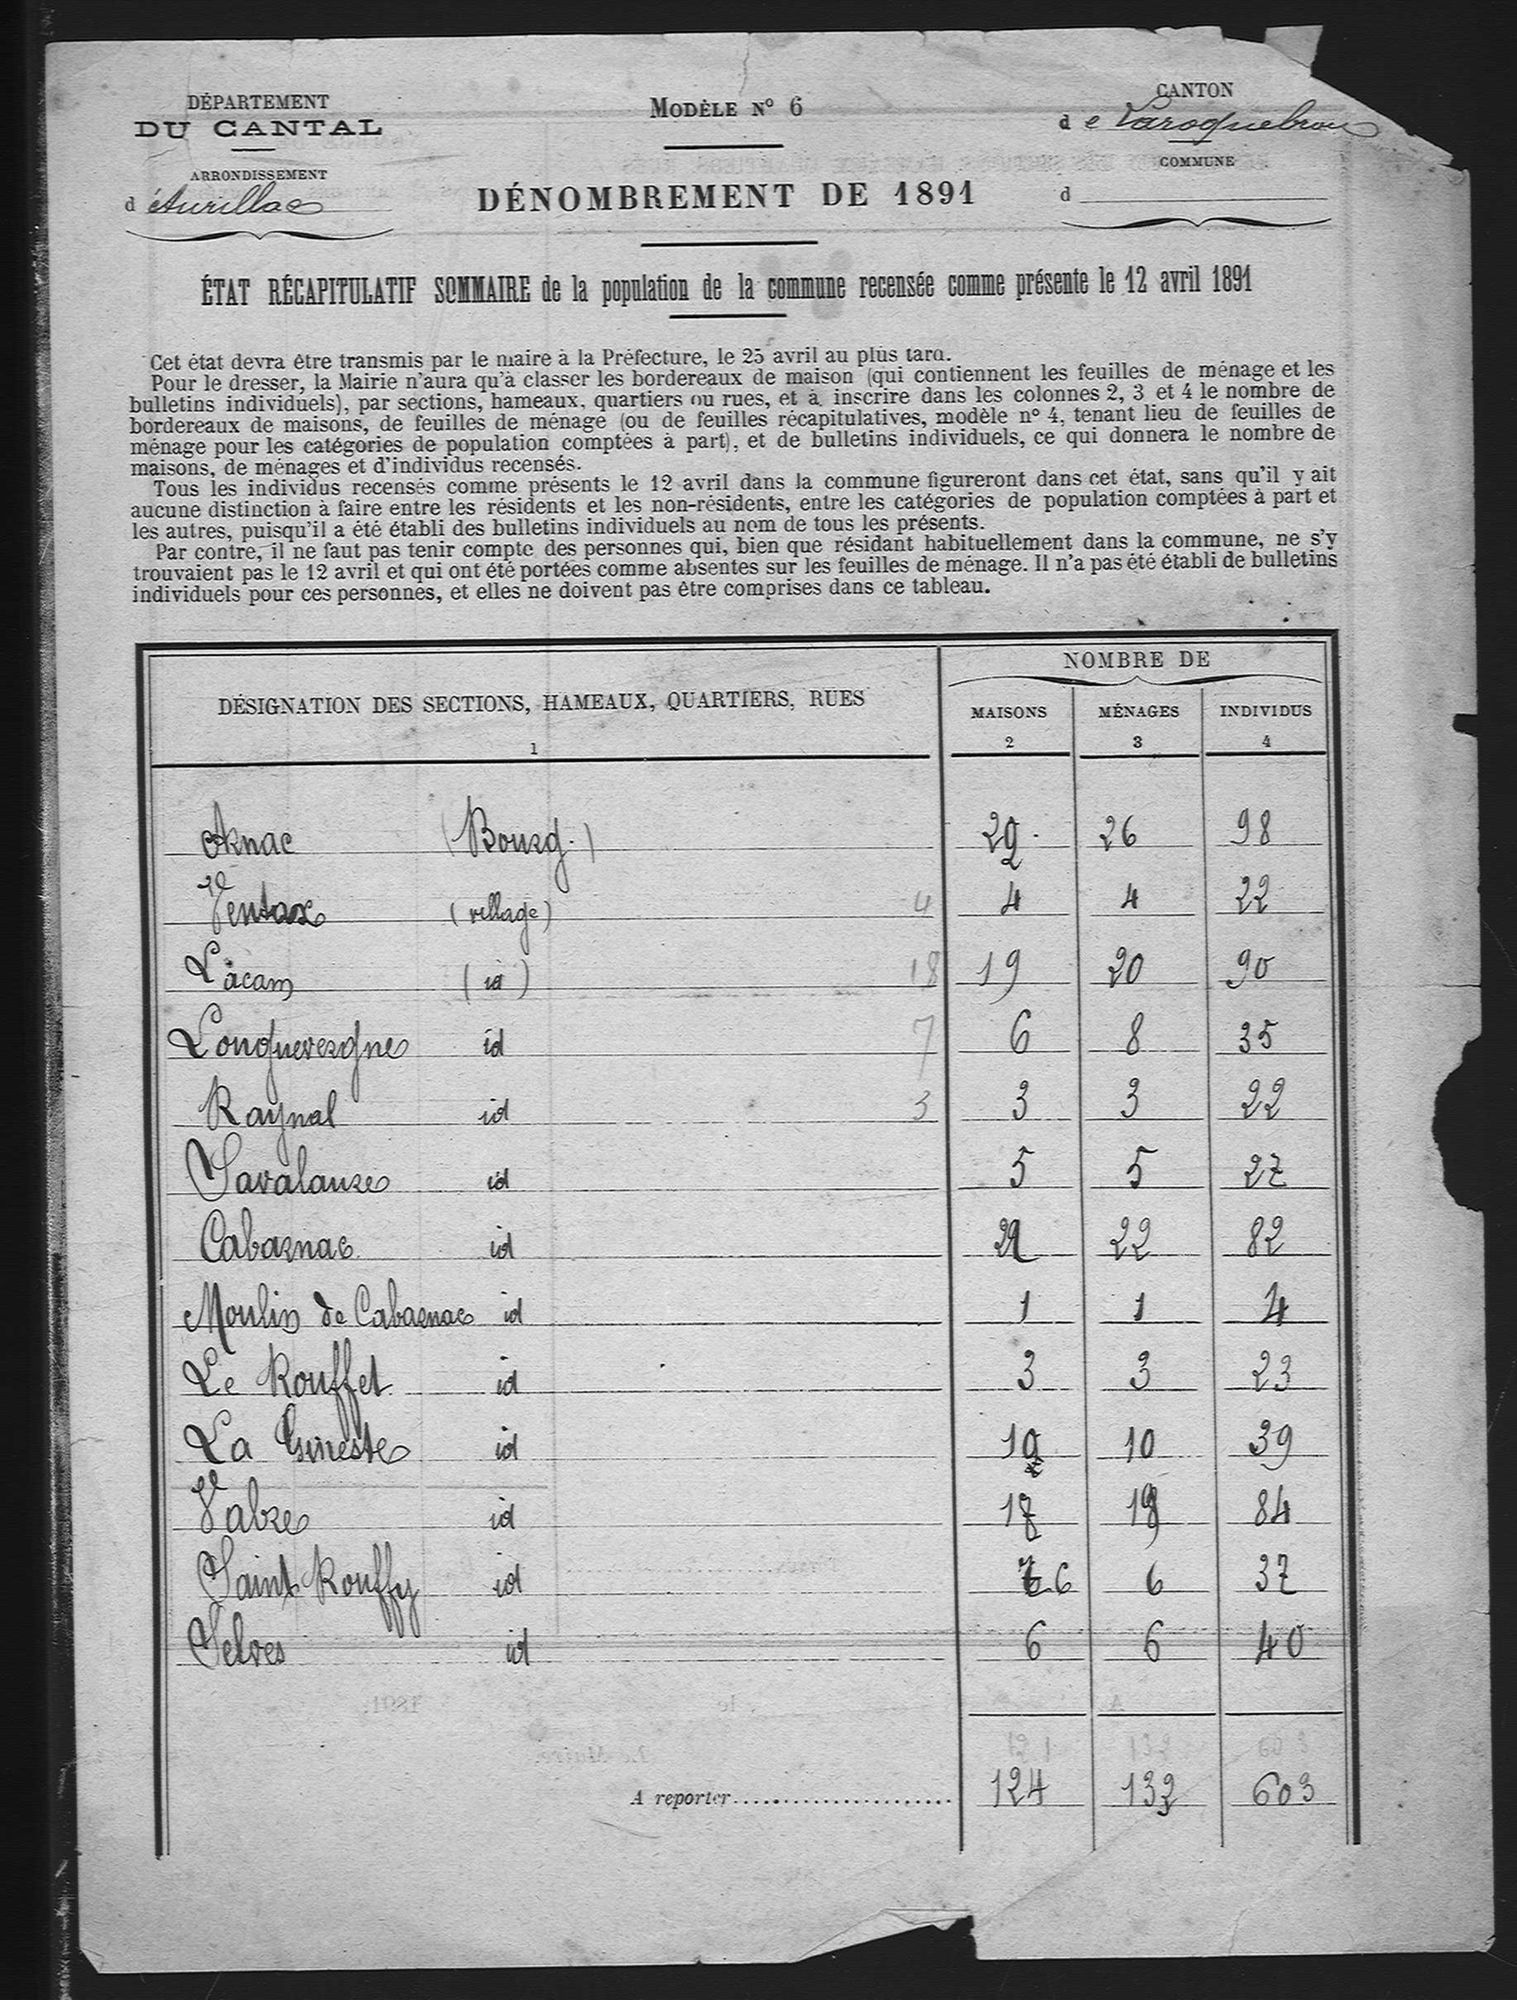 DÉPARTEMENT
DU CANTAL
ARRONDISSEMENT
d'Aurillac
MODÈLE N° 6
DÉNOMBREMENT DE 1891
CANTON
de Laroquebrou
COMMUNE
d
ÉTAT RÉCAPITULATIF SOMMAIRE de la population de la commune recensée comme présente le 12 avril 1891
Cet état devra être transmis par le maire à la Préfecture, le 25 avril au plus tard.
Pour le dresser, la Mairie n'aura qu'à classer les bordereaux de maison (qui contiennent les feuilles de ménage et les
bulletins individuels), par sections, hameaux, quartiers ou rues, et à inscrire dans les colonnes 2, 3 et 4 le nombre de
bordereaux de maisons, de feuilles de ménage (ou de feuilles récapitulatives, modèle n° 4, tenant lieu de feuilles de
ménage pour les catégories de population comptées à part), et de bulletins individuels, ce qui donnera le nombre de
maisons, de ménages et d'individus recensés.
Tous les individus recensés comme présents le 12 avril dans la commune figureront dans cet état, sans qu'il y ait
aucune distinction à faire entre les résidents et les non-résidents, entre les catégories de population comptées à part et
les autres, puisqu'il a été établi des bulletins individuels au nom de tous les présents.
Par contre, il ne faut pas tenir compte des personnes qui, bien que résidant habituellement dans la commune, ne s'y
trouvaient pas le 12 avril et qui ont été portées comme absentes sur les feuilles de ménage. Il n'a pas été établi de bulletins
individuels pour ces personnes, et elles ne doivent pas être comprises dans ce tableau.
DÉSIGNATION DES SECTIONS, HAMEAUX, QUARTIERS, RUES
NOMBRE DE
MAISONS MÉNAGES INDIVIDUS
1 2 3 4
Arnac (Bourg.) 26 98
Ventax (village) 4 4 4 22
Lacam (id) 18 19 20 90
Longuevergne id 7 6 8 35
Raynal id 3 3 3 22
Lavalause id 5 5 27
Cabarnac id 22 82
Moulin de Cabarnac id 1 1 4
Le Rouffet id 3 3 23
La Gineste id 10 39
Vabre id 84
Saint Rouffy id 6 6 37
Selves id 6 6 40
121 132 603
A reporter 124 132 603